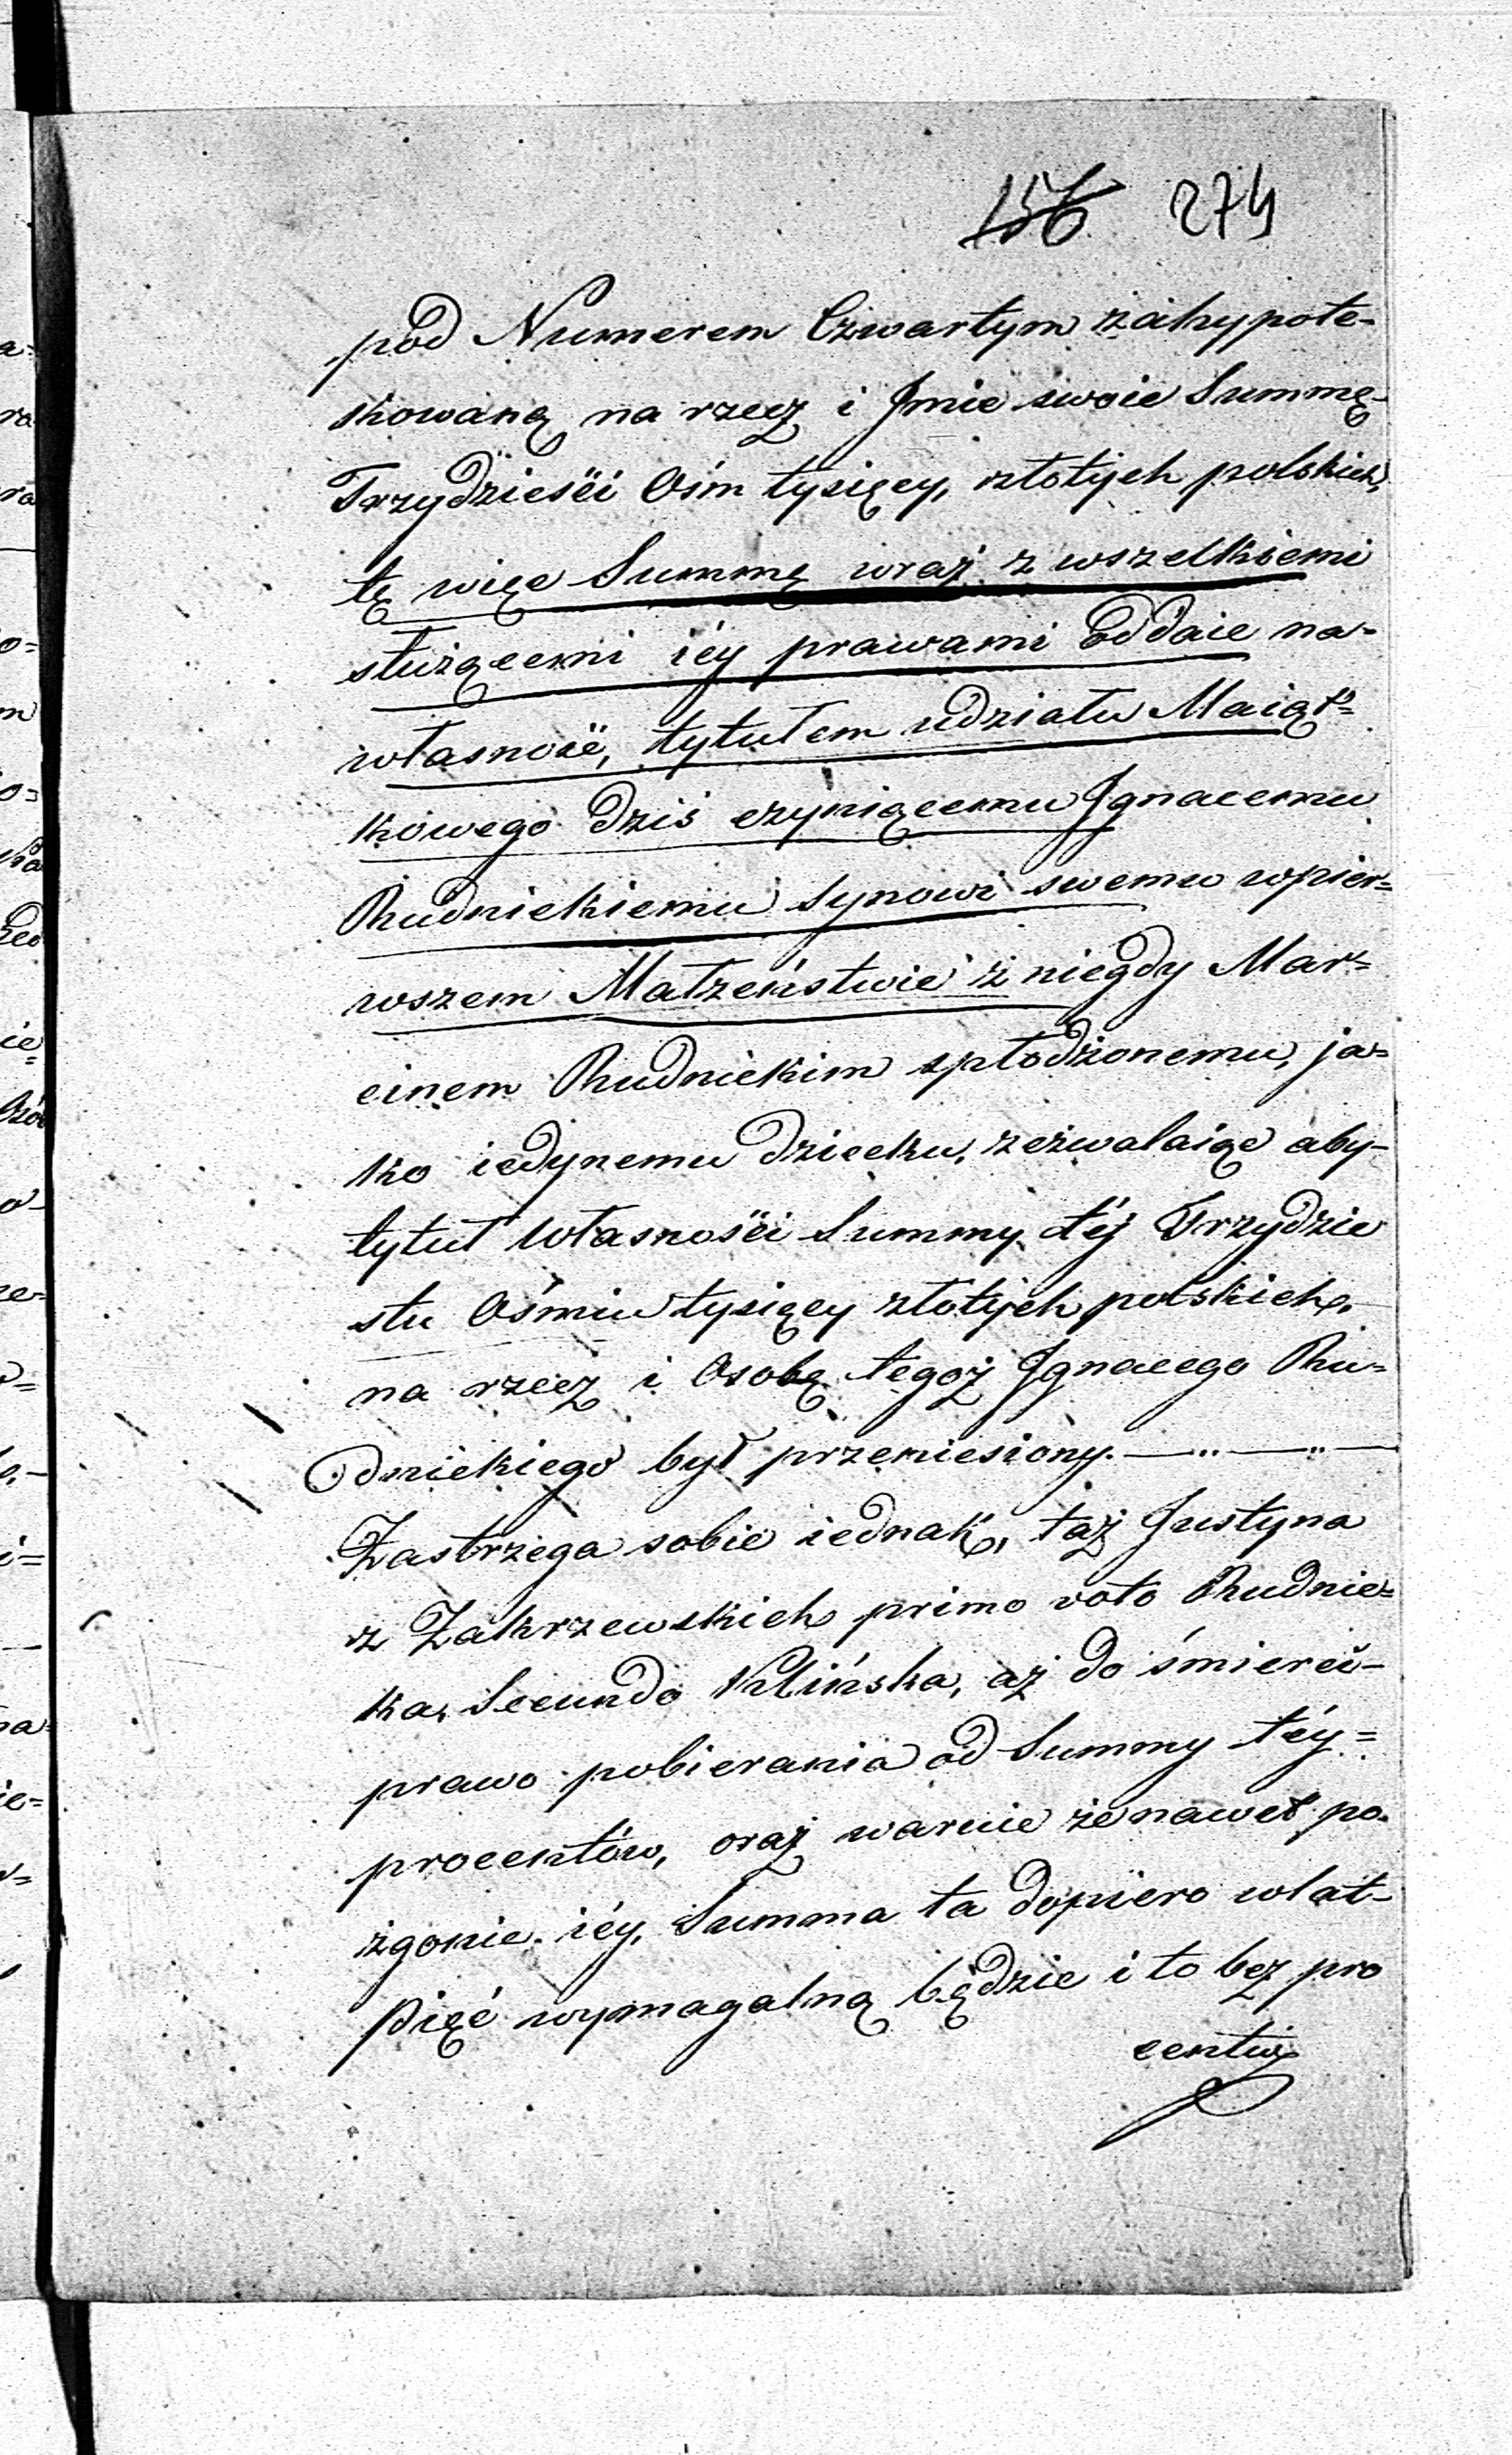 156 274
pod Numerem Czwartym zahypote-
kowaną na rzecz i Jmie swoie Summę
Trzydzieści Ośm tysięcy, złotych polskich,
tę więc Summę wraz z wszelkiemi
służącemi iéy prawami Oddaie na-
własność, tytułem udziału Maiąt=
kowego dziś czyniącemu Jgnacemu
Rudnickiemu Synowi swemu wpier=
wszem Małżeństwie z niegdy Mar=
cinem Rudnickim spłodzonemu, ja=
ko iedynemu dziecku, zezwalaiąc aby-
tytuł własności Summy téj Trzydzie
stu Ośmiu tysięcy złotych polskich,
na rzecz i Osobę tegoż Jgnacego Ru=
dnickiego był przeniesiony.—"—"—
Zastrzega sobie iednak, taż Justyna
z Zakrzewskich primo voto Rudnic=
ka, Secundo Klińska, aż do śmierci-
prawo pobierania od Summy téy=
procentów, oraz warcie że nawet po-
zgonie iéy, Summa ta dopiero wlat-
pięć wymagalną będzie i to bez pro
centu